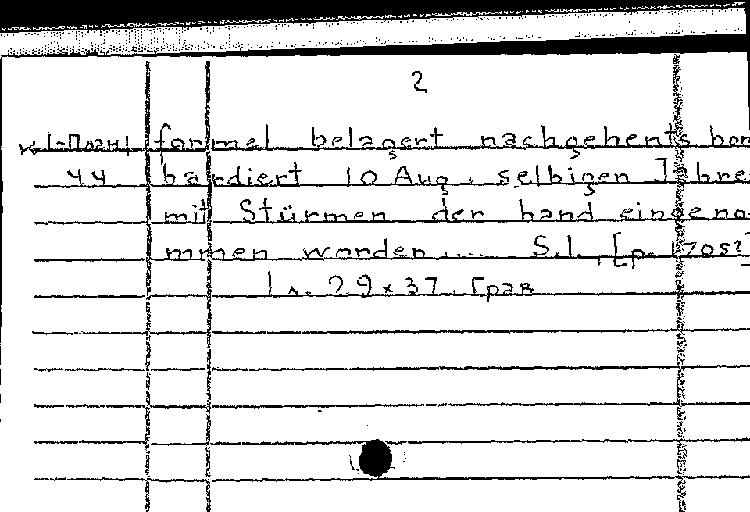 2
к1-План1 formal belagert nachgehents bom
44 bardiert 10 Aug. selbigen Jahres
mit Stürmen der hand eingeno-
mmen worden.... S.l., [p. 1705?]
1 л. 29×37. Грав